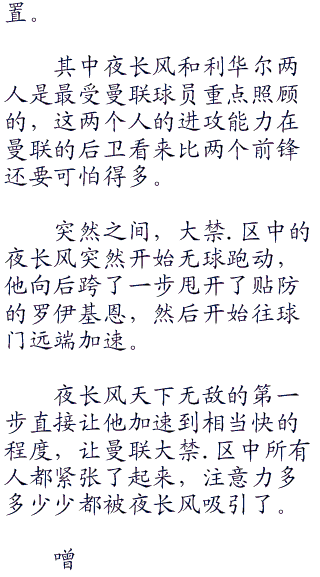 置。
其中夜长风和利华尔两
人是最受曼联球员重点照顾
的，这两个人的进攻能力在
曼联的后卫看来比两个前锋
还要可怕得多。
突然之间，大禁.区中的
夜长风突然开始无球跑动，
他向后跨了一步甩开了贴防
的罗伊基恩，然后开始往球
门远端加速。
夜长风天下无敌的第一
步直接让他加速到相当快的
程度，让曼联大禁.区中所有
人都紧张了起来，注意力多
多少少都被夜长风吸引了。
噌